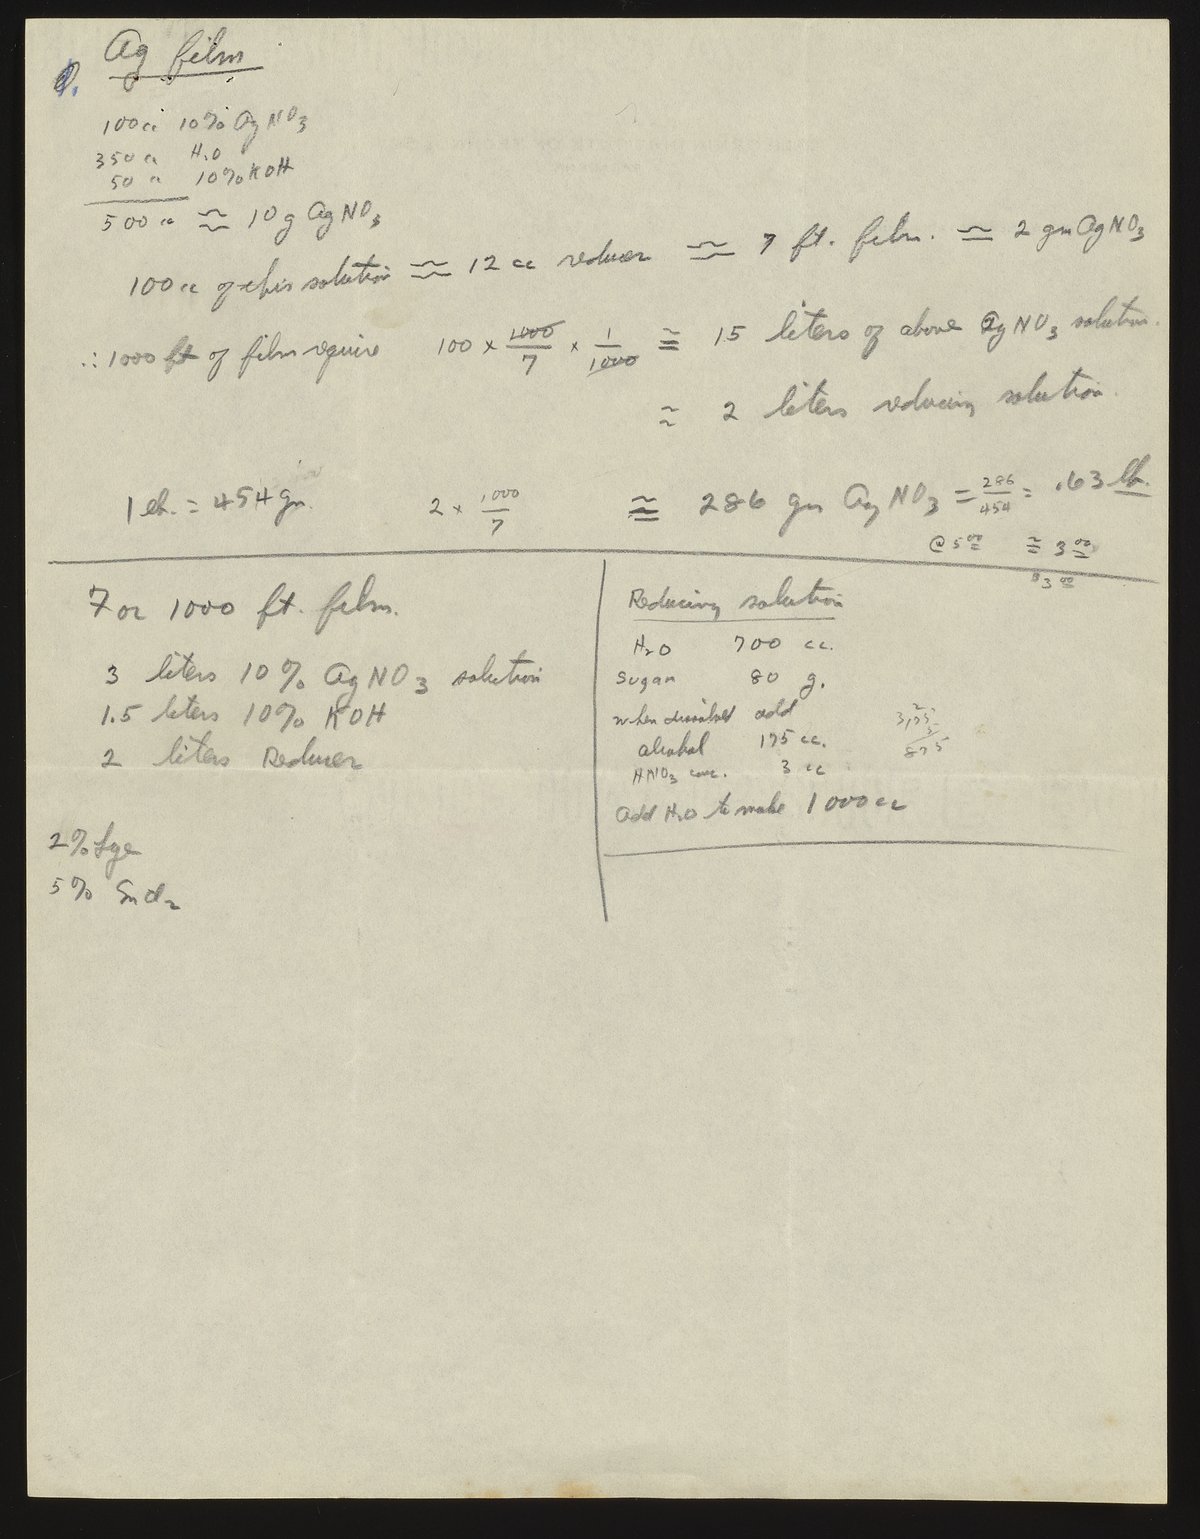 1.
Ag film
100 cc 10% AgNO3
350 cc H2O
50 cc 10% KOH
500 cc ≈ 10 g AgNO3
100 cc of this solution ≈ 12 cc reducer ≈ 7 ft. film. ≈ 2 gm AgNO3
∴ 1000 ft of film require 100 × 1000/7 × 1/1000 ≅ 15 liters of above AgNO3 solution.
≈ 2 liters reducing solution.
1 lb. = 454 gm. 2 × 1000/7 ≅ 286 gm AgNO3 = 286/454 = .63 lb.
@ 5 00 ≅ 3 00
$3 00
For 1000 ft. film.
3 liters 10% AgNO3 solution
1.5 liters 10% KOH
2 liters Reducer
2% Lye
5% SnCl2
Reducing solution
H2O 700 cc.
Sugar 80 g.
when dissolved add
alcohol 175 cc.
HNO3 conc. 3 cc
add H2O to make 1000 cc
875